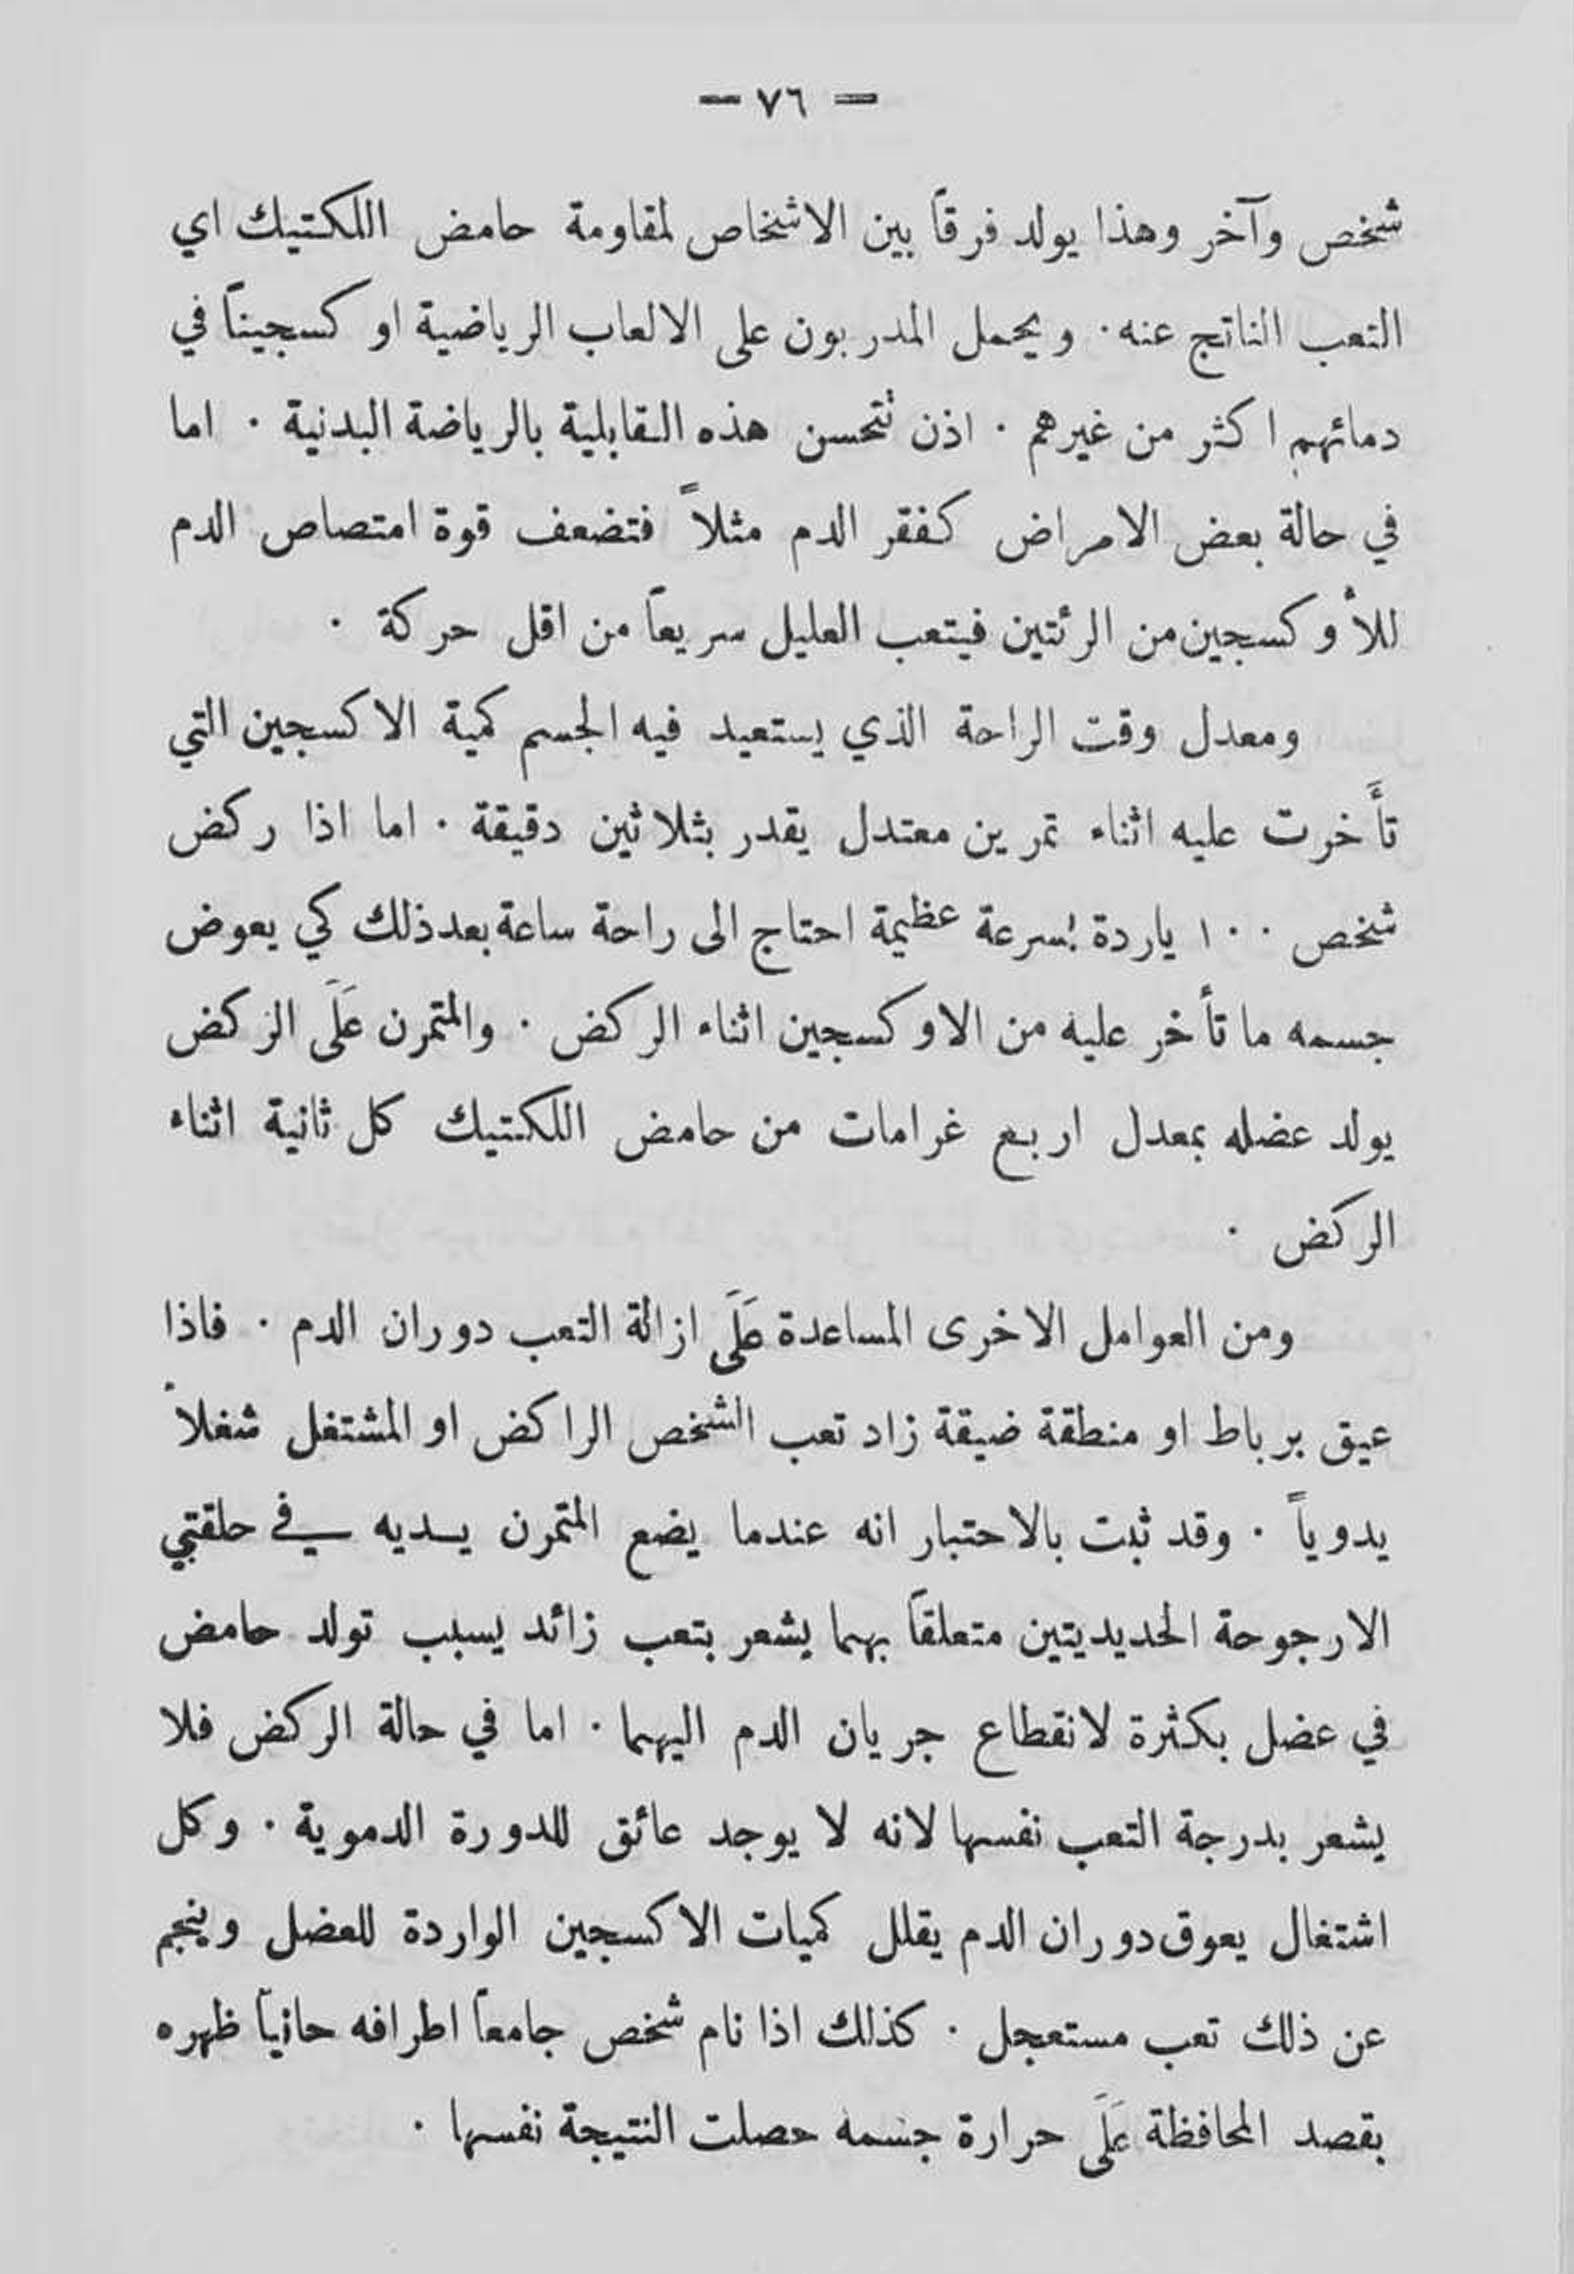 — ٧٦ —
شخص وآخر وهذا يولد فرقاً بين الاشخاص لمقاومة حامض اللكتيك اي
التعب الناتج عنه. ويحمل المدربون على الالعاب الرياضية اوكسجيناً في
دمائهم اكثر من غيرهم. اذن تتحسن هذه القابلية بالرياضة البدنية. اما
في حالة بعض الامراض كفقر الدم مثلاً فتضعف قوة امتصاص الدم
للأوكسجين من الرئتين فيتعب العليل سريعاً من اقل حركة.
ومعدل وقت الراحة الذي يستعيد فيه الجسم كمية الاكسجين التي
تأَخرت عليه اثناء تمرين معتدل يقدر بثلاثين دقيقة. اما اذا ركض
شخص ١٠٠ ياردة بسرعة عظيمة احتاج الى راحة ساعة بعد ذلك كي يعوض
جسمه ما تأخر عليه من الاوكسجين اثناء الركض. والمتمرن عَلَى الركض
يولد عضله بمعدل اربع غرامات من حامض اللكتيك كل ثانية اثناء
الركض.
ومن العوامل الاخرى المساعدة عَلَى ازالة التعب دوران الدم. فاذا
عيق برباط او منطقة ضيقة زاد تعب الشخص الراكض او المشتغل شغلاً
يدوياً. وقد ثبت بالاحتبار انه عندما يضع المتمرن يديه في حلقتي
الارجوحة الحديديتين متعلقاً بهما يشعر بتعب زائد يسبب تولد حامض
في عضل بكثرة لانقطاع جريان الدم اليهما. اما في حالة الركض فلا
يشعر بدرجة التعب نفسها لانه لا يوجد عائق للدورة الدموية. وكل
اشتغال يعوق دوران الدم يقلل كميات الاكسجين الواردة للعضل وينجم
عن ذلك تعب مستعجل. كذلك اذا نام شخص جامعاً اطرافه حانياً ظهره
بقصد المحافظة عَلَى حرارة جسمه حصلت النتيجة نفسها.